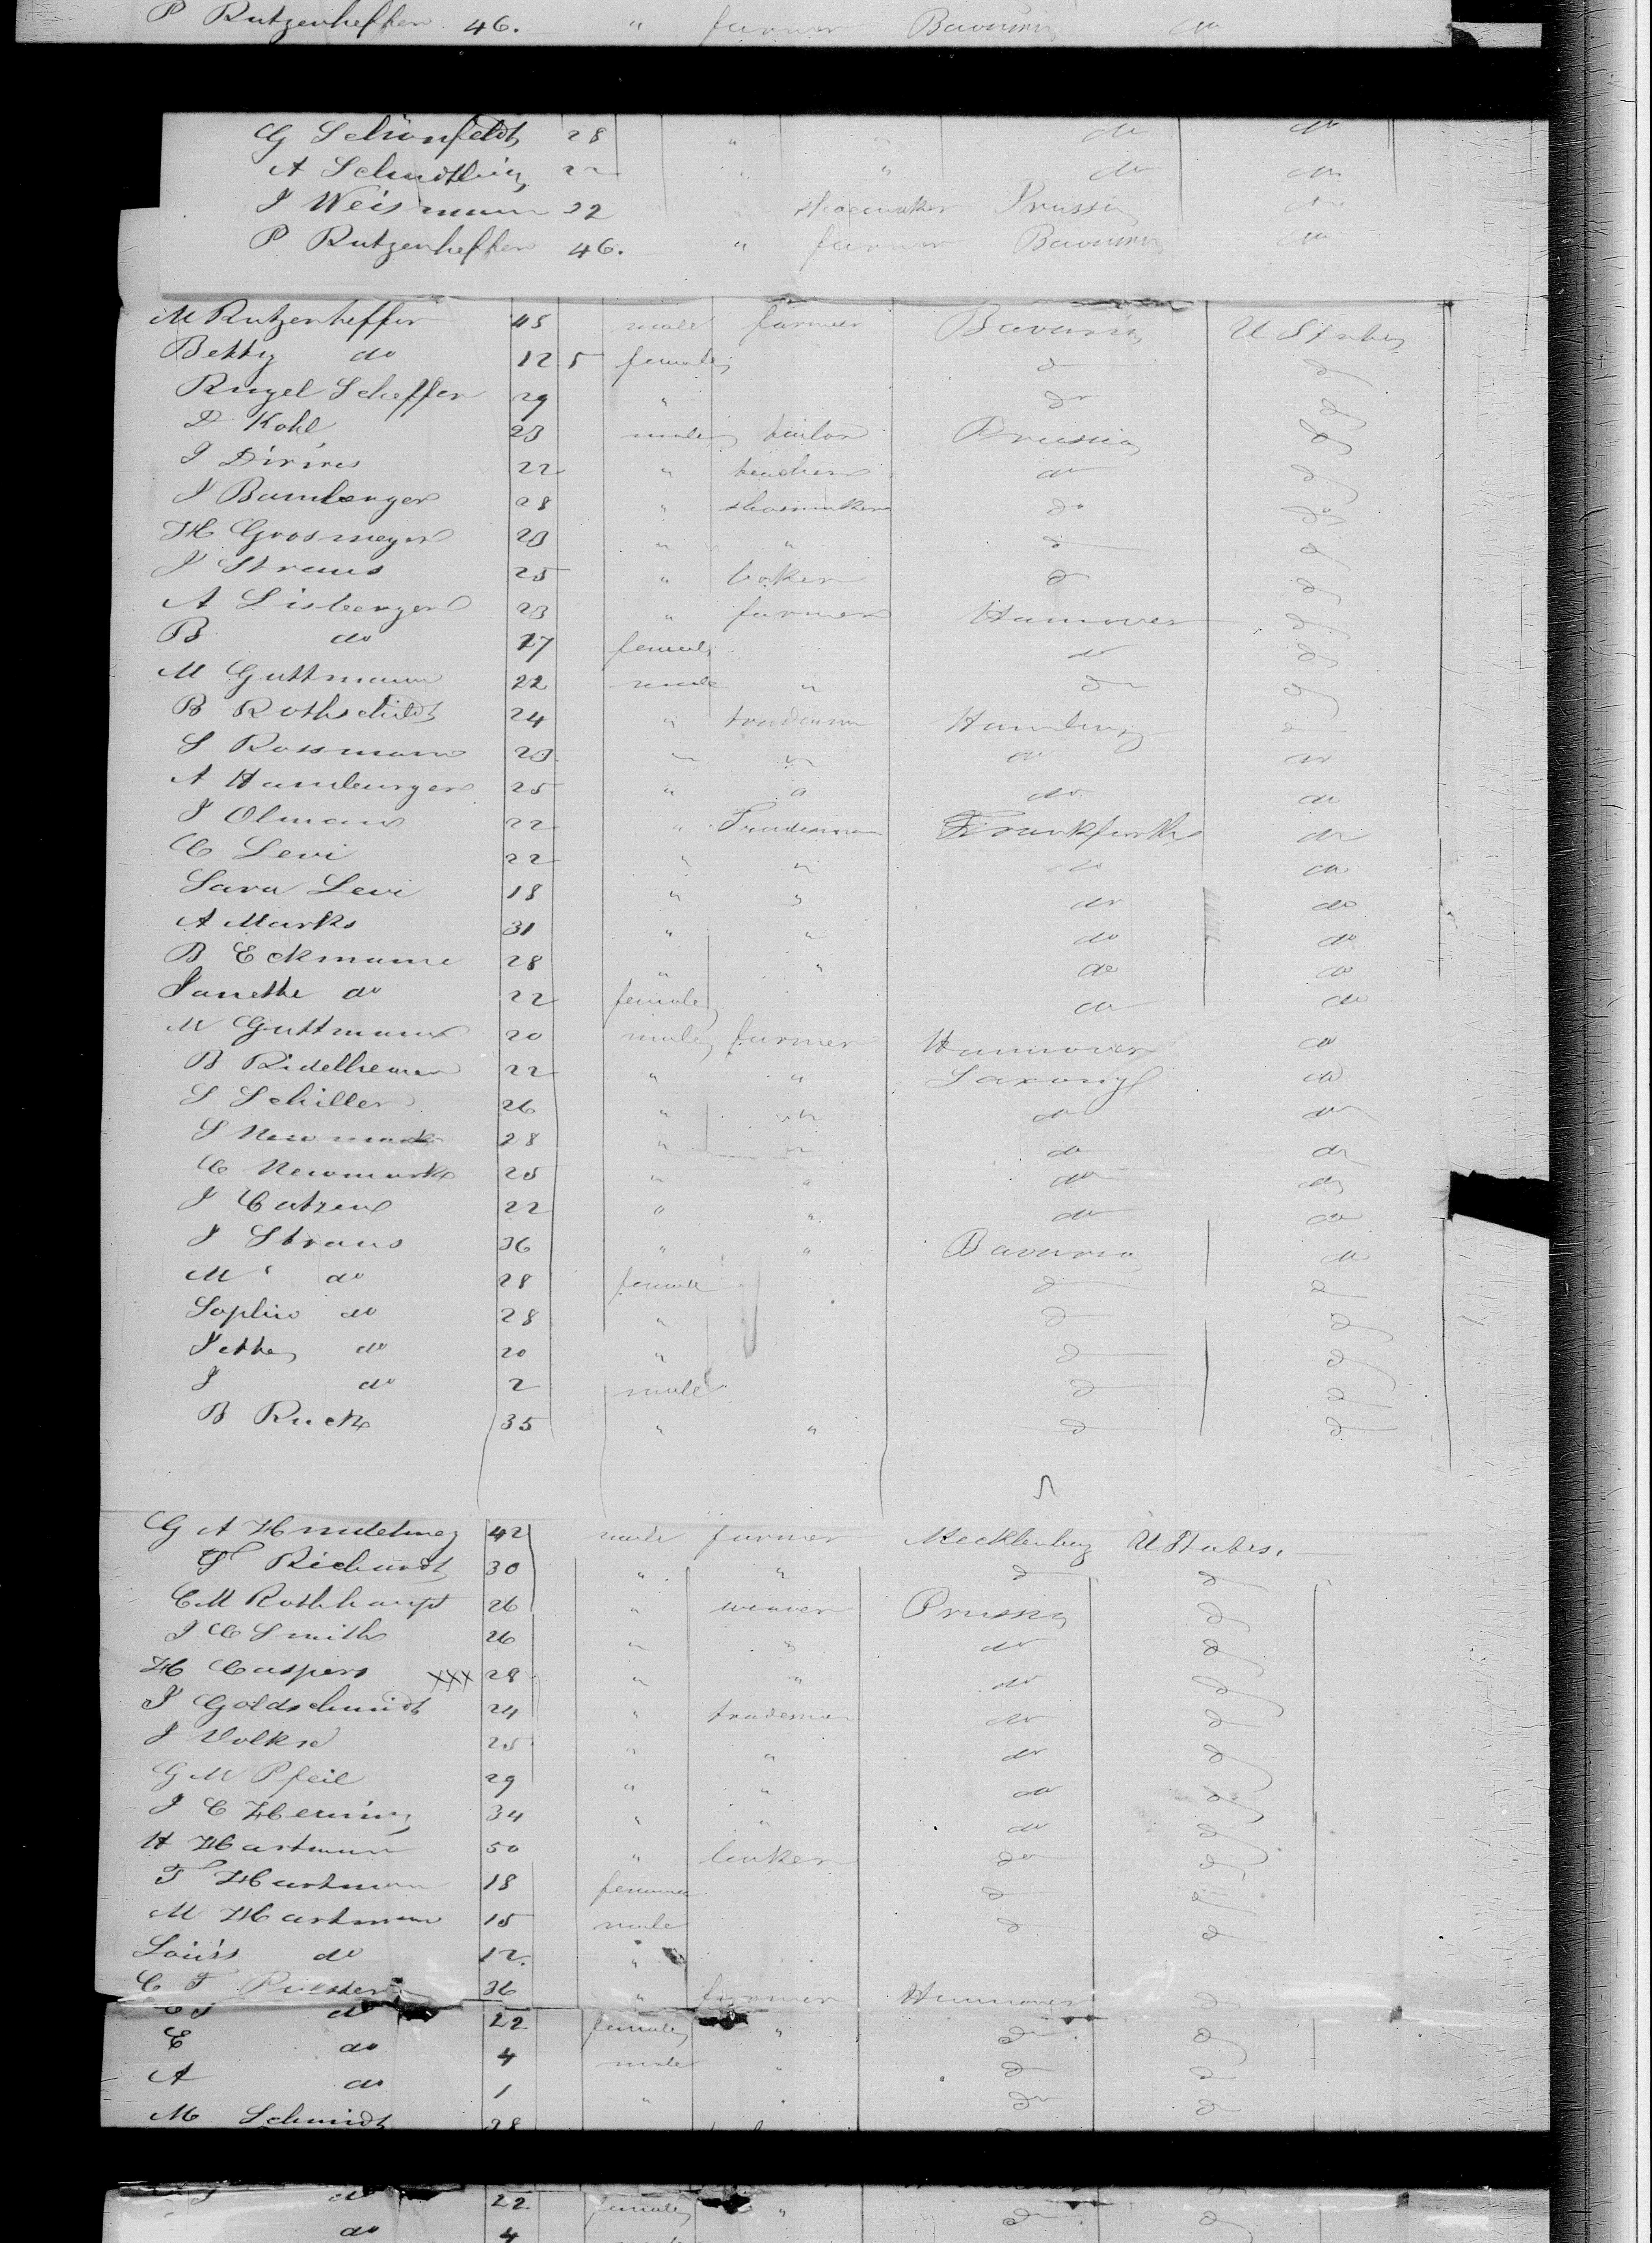 P Rutzenheffer 46. " farmer Bavaria do
G Schönfeldt 28 " " do do
A 22 " " do do
J Weismann 22 " shoemaker Prussia do
P Rutzenheffer 46. " farmer Bavaria do
M Rutzenheffer 45 male farmer Bavaria U States
Betty do 12 5 female do do
Rugel Scheffer 29 " do do
D Kohl 23 male tailor Prussia do
J 22 " teacher do do
J Bamberger 28 " shoemaker do do
H Grosmeyer 23 " " do do
J Straus 25 " baker do do
A Lisberger 23 " farmer Hannover do
B do 27 female do do
M Guttmann 22 male " do do
B Rothschildt 24 " tradesman Hamburg do
S Rossmann 23 " " do do
A Hamburger 25 " " do do
J Olmann 22 " Tradesman Frankfurth do
C Levi 22 " " do do
Sara Levi 18 " " do do
A Marks 31 " " do do
B Eckmann 28 " " do do
Janethe do 22 female do do
M Guttmann 20 male farmer Hannover do
B Ridelheimer 22 " " Saxony do
S Schiller 26 " " do do
S Newmark 28 " " do do
C Newmark 25 " " do do
J Catzen 22 " " do do
J Straus 36 " " Bavaria do
M do 28 female do do
Sophie do 28 " do do
Jette do 20 " do do
J do 2 male do do
B Ruck 35 " " do do
G A 42 male farmer Mecklenburg U States.
F Richardt 30 " " do do
C M Rothhaupt 26 " weaver Prussia do
J C Smith 26 " " do do
H Caspers xxx 28 " " do do
J Goldschmidt 24 " tradesman do do
J Volkse 25 " " do do
G M Pfeil 29 " " do do
J C Hering 34 " " do do
H Hartmann 50 " baker do do
F Hartman 18 female do do
M Hartmann 15 male do do
Louis do 12. "
C F 36 " farmer Hannover do
do 22 female " do do
E do 4 male " do do
A do 1 " " do do
M Schmidt 28
do 22 female " do do
do 4